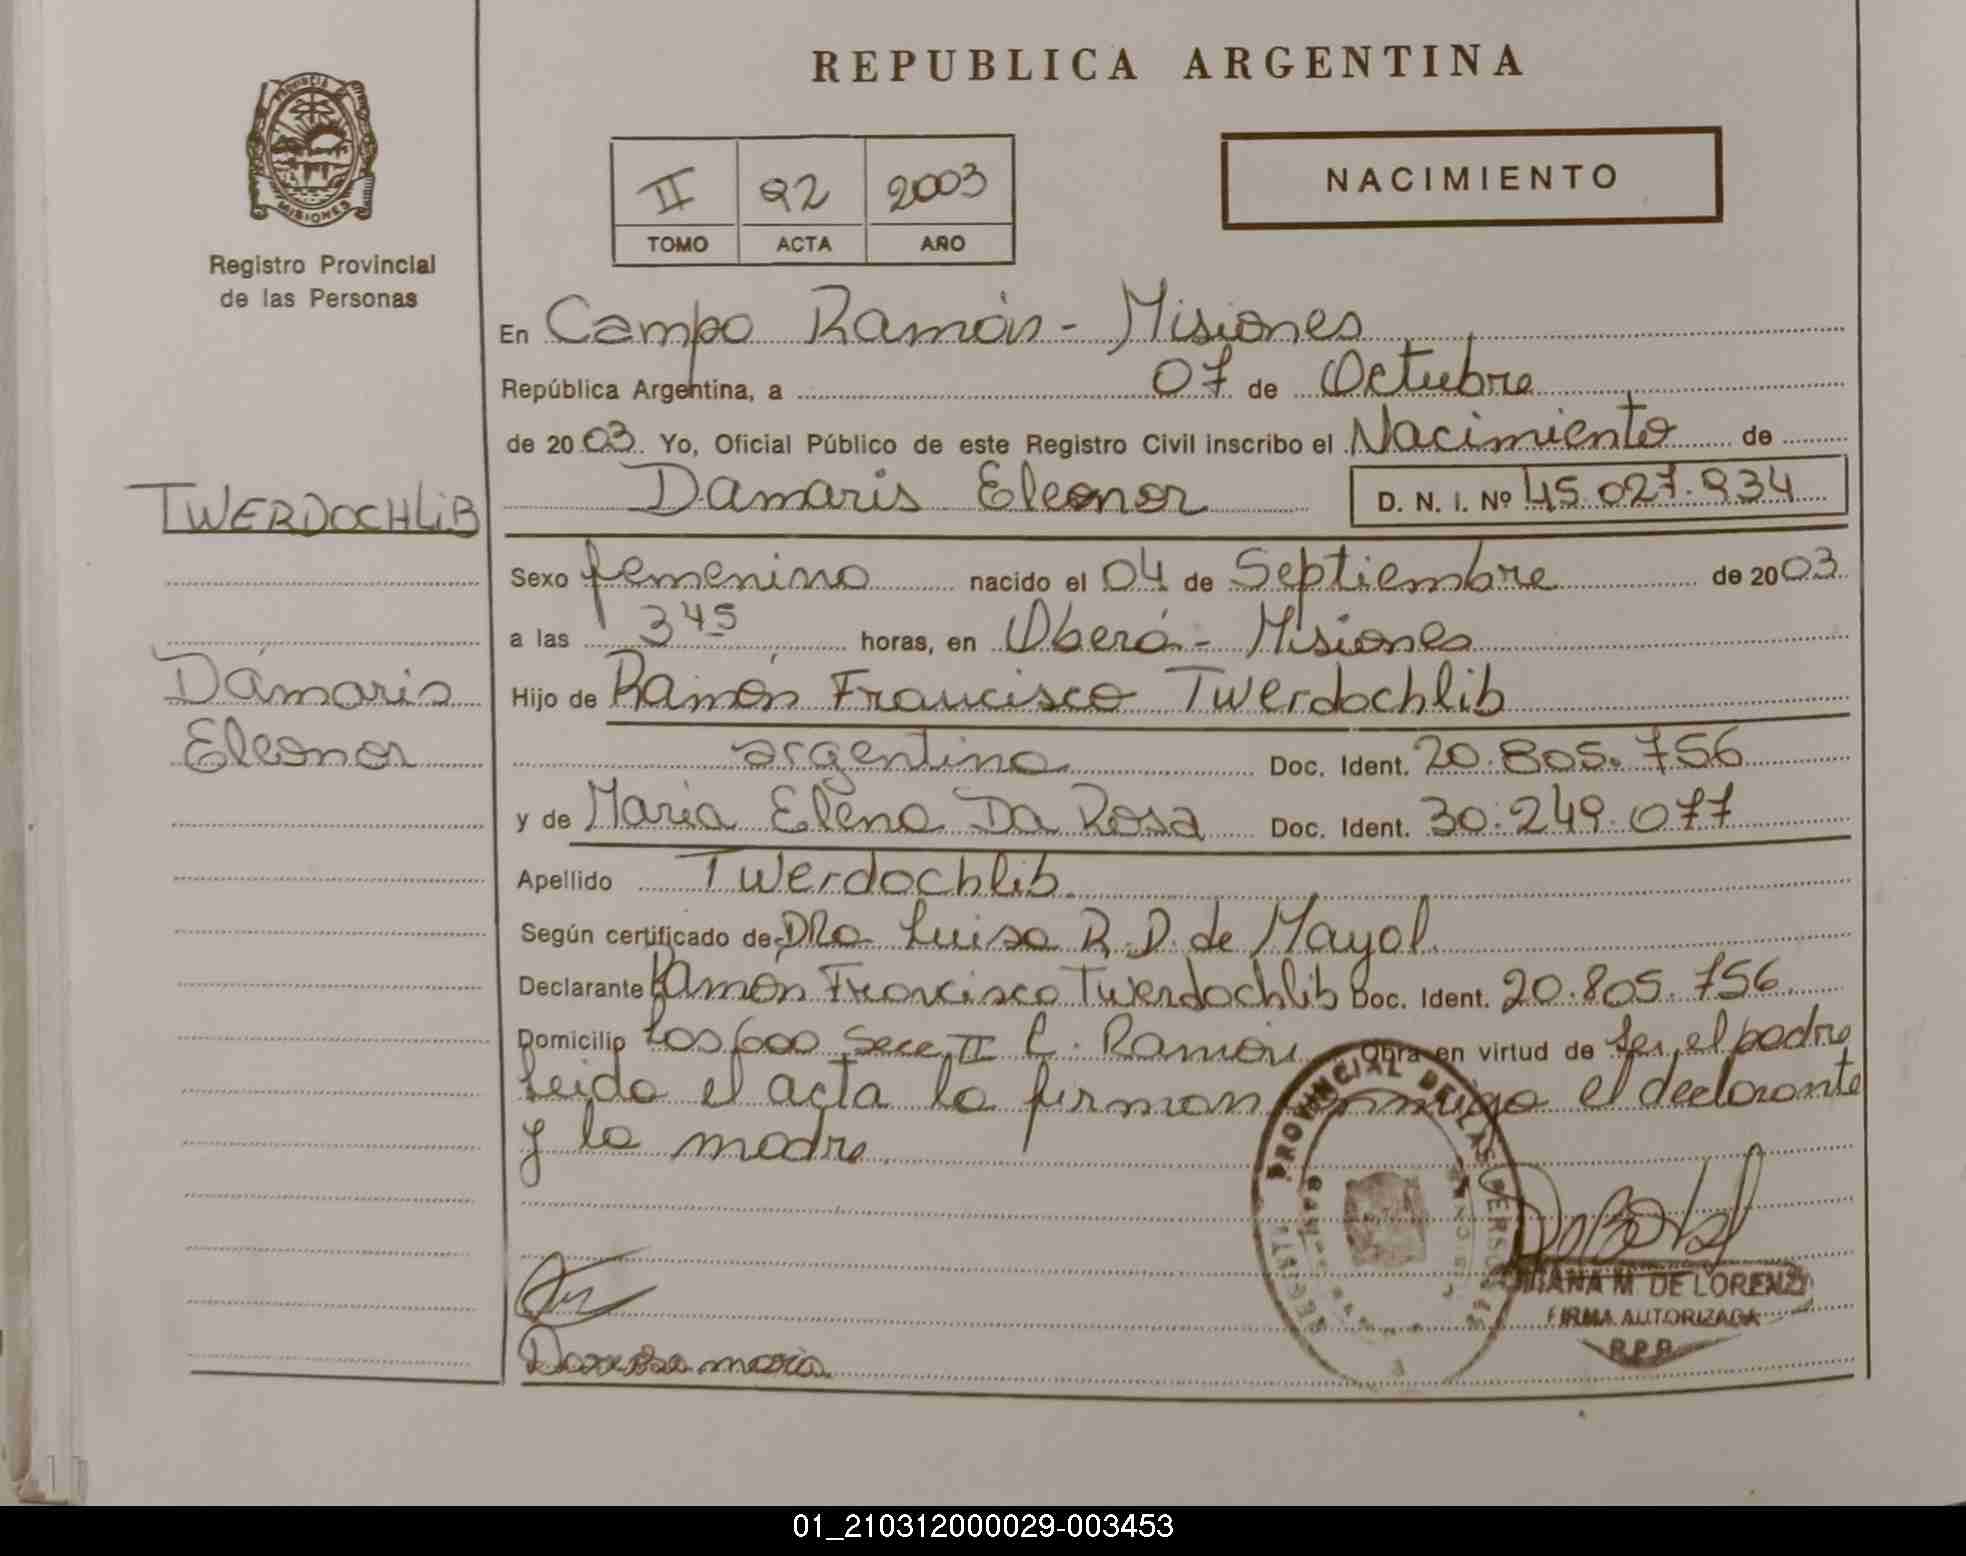 REPUBLICA ARGENTINA
PROVINCIA DE MISIONES
Registro Provincial
de las Personas
II 92 2003
TOMO ACTA AÑO
NACIMIENTO
En Campo Ramón - Misiones
República Argentina, a 07 de Octubre
de 2003. Yo, Oficial Público de este Registro Civil inscribo el Nacimiento de
Damaris Eleonor D. N. I. Nº 45.027.934
TWERDOCHLiB
Damaris
Eleonor
Sexo femenino nacido el 04 de Septiembre de 2003
a las 3 45 horas, en Oberá - Misiones
Hijo de Ramón Francisco Twerdochlib
argentino Doc. Ident. 20.805.756
y de Maria Elena Da Rosa Doc. Ident. 30.249.077
Apellido Twerdochlib
Según certificado de DRa. Luisa R. D. de Mayol
Declarante Ramón Francisco Twerdochlib Doc. Ident. 20.805.756
Domicilio Los 600 Secc. II C. Ramón Obra en virtud de ser el padre
leida el acta la firman conmigo el declarante
y la madre
PROVINCIAL DE LAS PERSONAS
DE LORENZI
FIRMA AUTORIZADA
R.P.P.
01_210312000029-003453